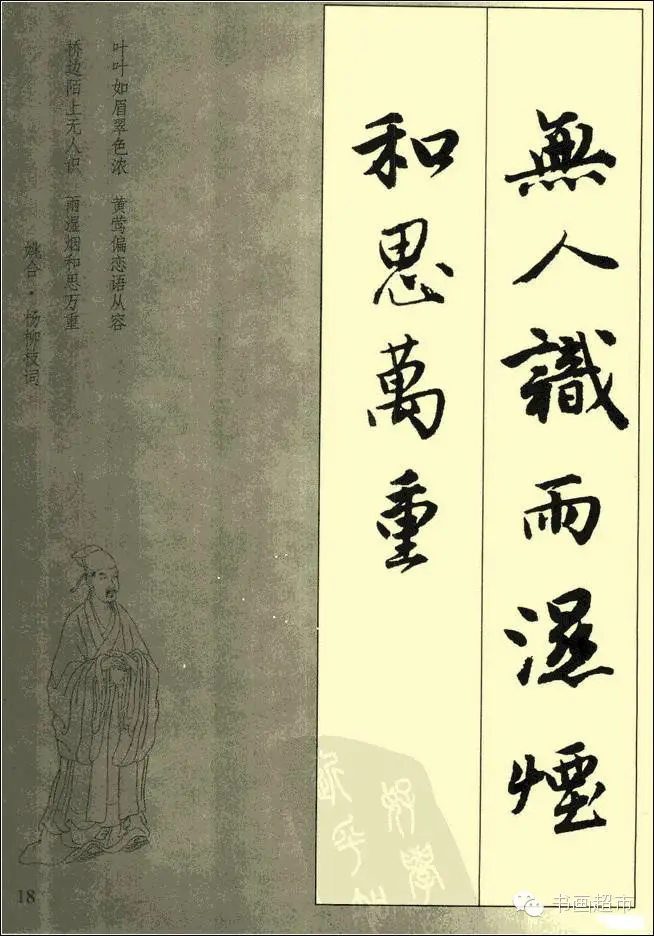 無人識雨濕煙
和思萬重
叶叶如眉翠色浓 黄莺偏恋语从容
桥边陌上无人识 雨湿烟和思万重
姚合·杨柳枝词
好學
18
书画超市